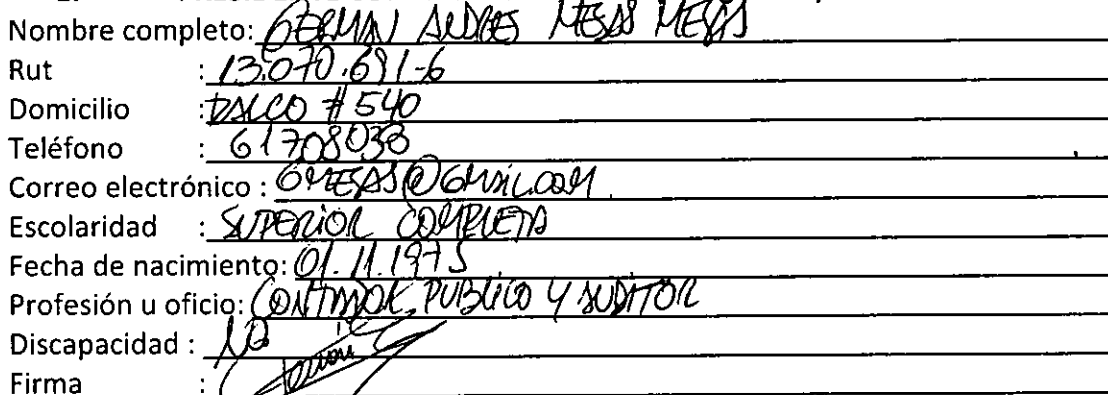 Nombre completo: GERMAN ANDRES MESAS MESAS
Rut : 13.070.691-6
Domicilio : DALCO # 540
Teléfono : 61708038
Correo electrónico : GMESAS@GMAIL.COM
Escolaridad : SUPERIOR COMPLETA
Fecha de nacimiento: 01.11.1975
Profesión u oficio: CONTADOR PUBLICO Y AUDITOR
Discapacidad : NO
Firma :